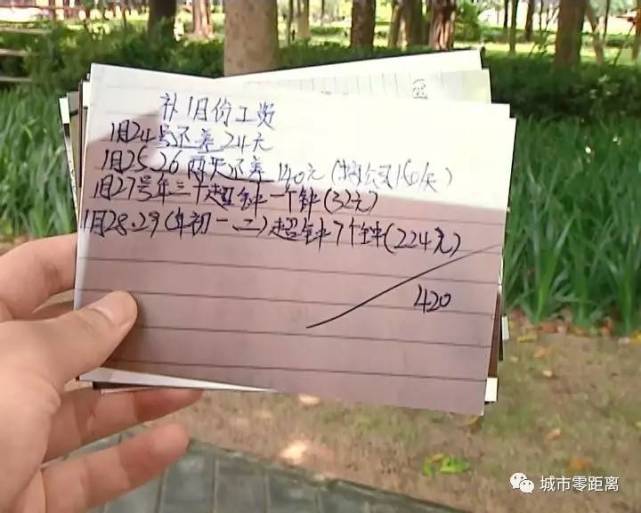 补1月份工资
1月24号还差24元
1月25.26两天还差140元(
1月27号年三十超钟一个钟(32元)
1月28.29(年初一.二)超钟7个钟(224元)
420
城市零距离